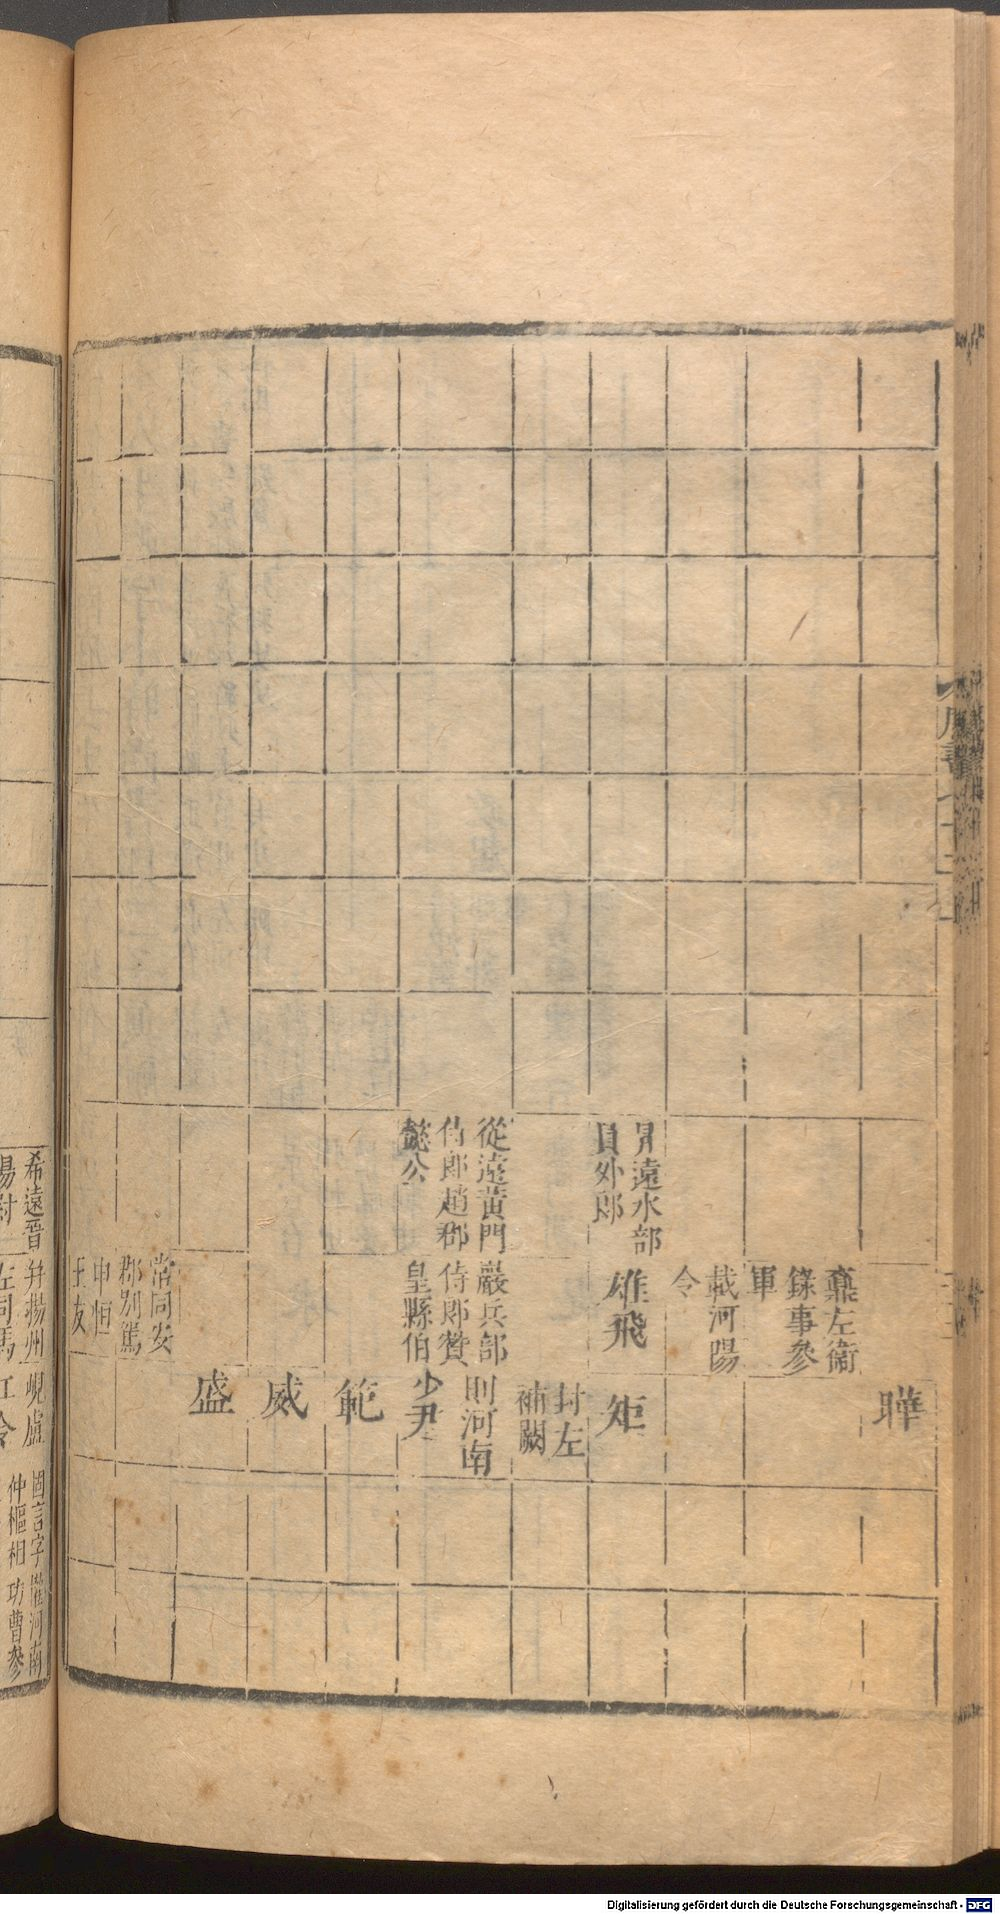 曄
彝左衞
錄事參
軍
載河陽
令
昇遠水部
員外郎
雄飛
矩
封左
補闕
從遠黃門
侍郎趙郡
懿公
巖兵部
侍郎贊
皇縣伯
則河南
少尹
範
威
盛
常同安
郡別駕
申恒
王友
希遠晉
陽尉
弁揚州
左司馬
峴盧
江令
固言字
仲樞相
灌河南
功曹參
Digitalisierung gefördert durch die Deutsche Forschungsgemeinschaft - DFG